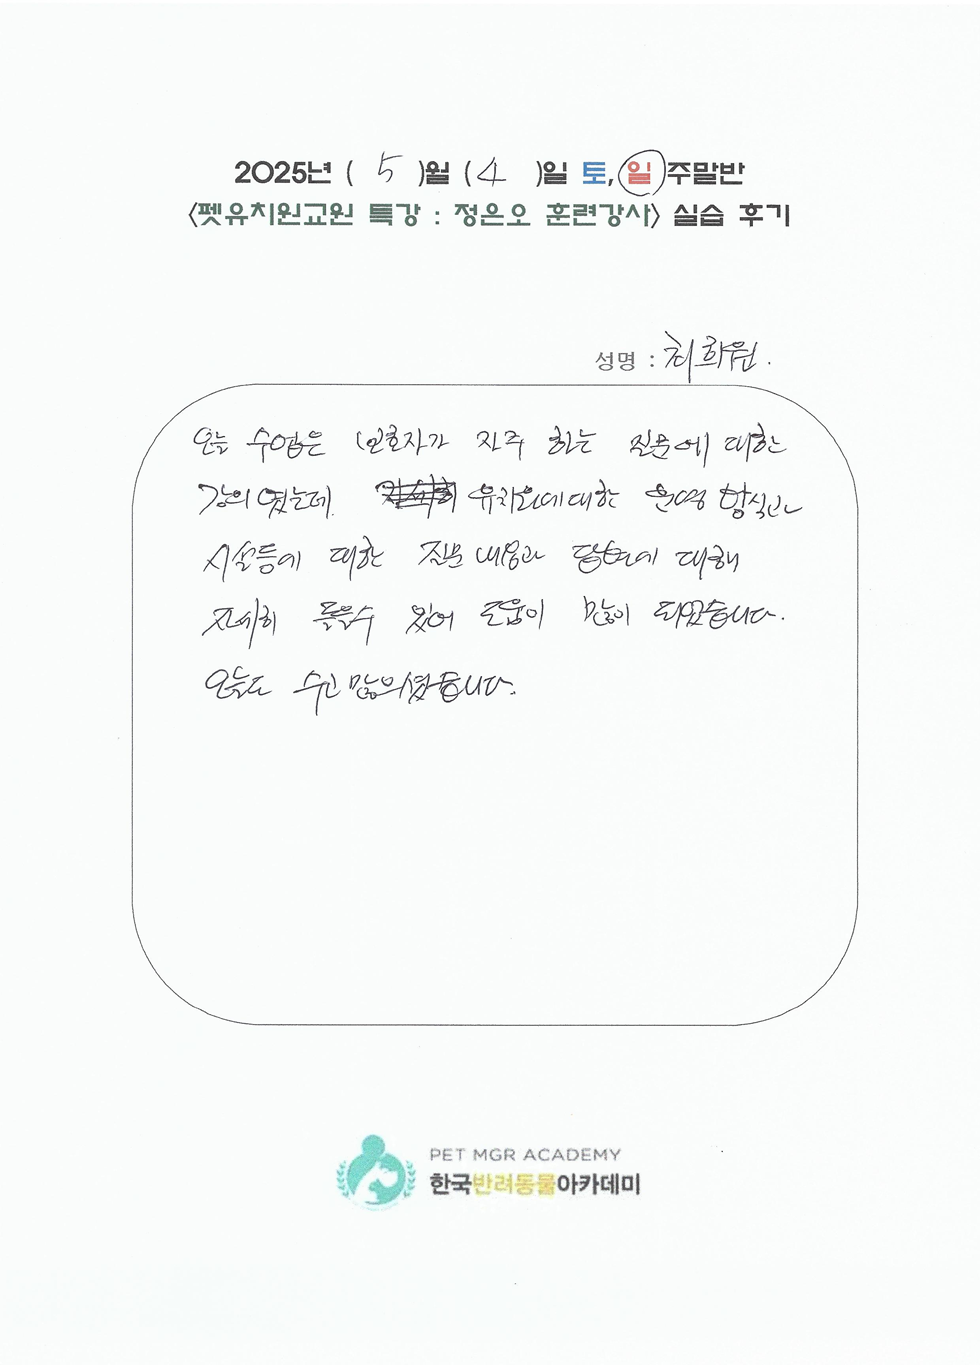 2025년 ( 5 )월 ( 4 )일 토, 일 주말반
<펫유치원교원 특강 : 정은오 훈련강사> 실습 후기
성명 : 최희원.
오늘 수업은 보호자가 자주 하는 질문에 대한
강의였는데 유치원에대한 운영 방식과
시설등에 대한 질문 내용과 답변에 대해
자세히 들을수 있어 도움이 많이 되었습니다.
오늘도 수고많으셨습니다.
PET MGR ACADEMY
한국반려동물아카데미